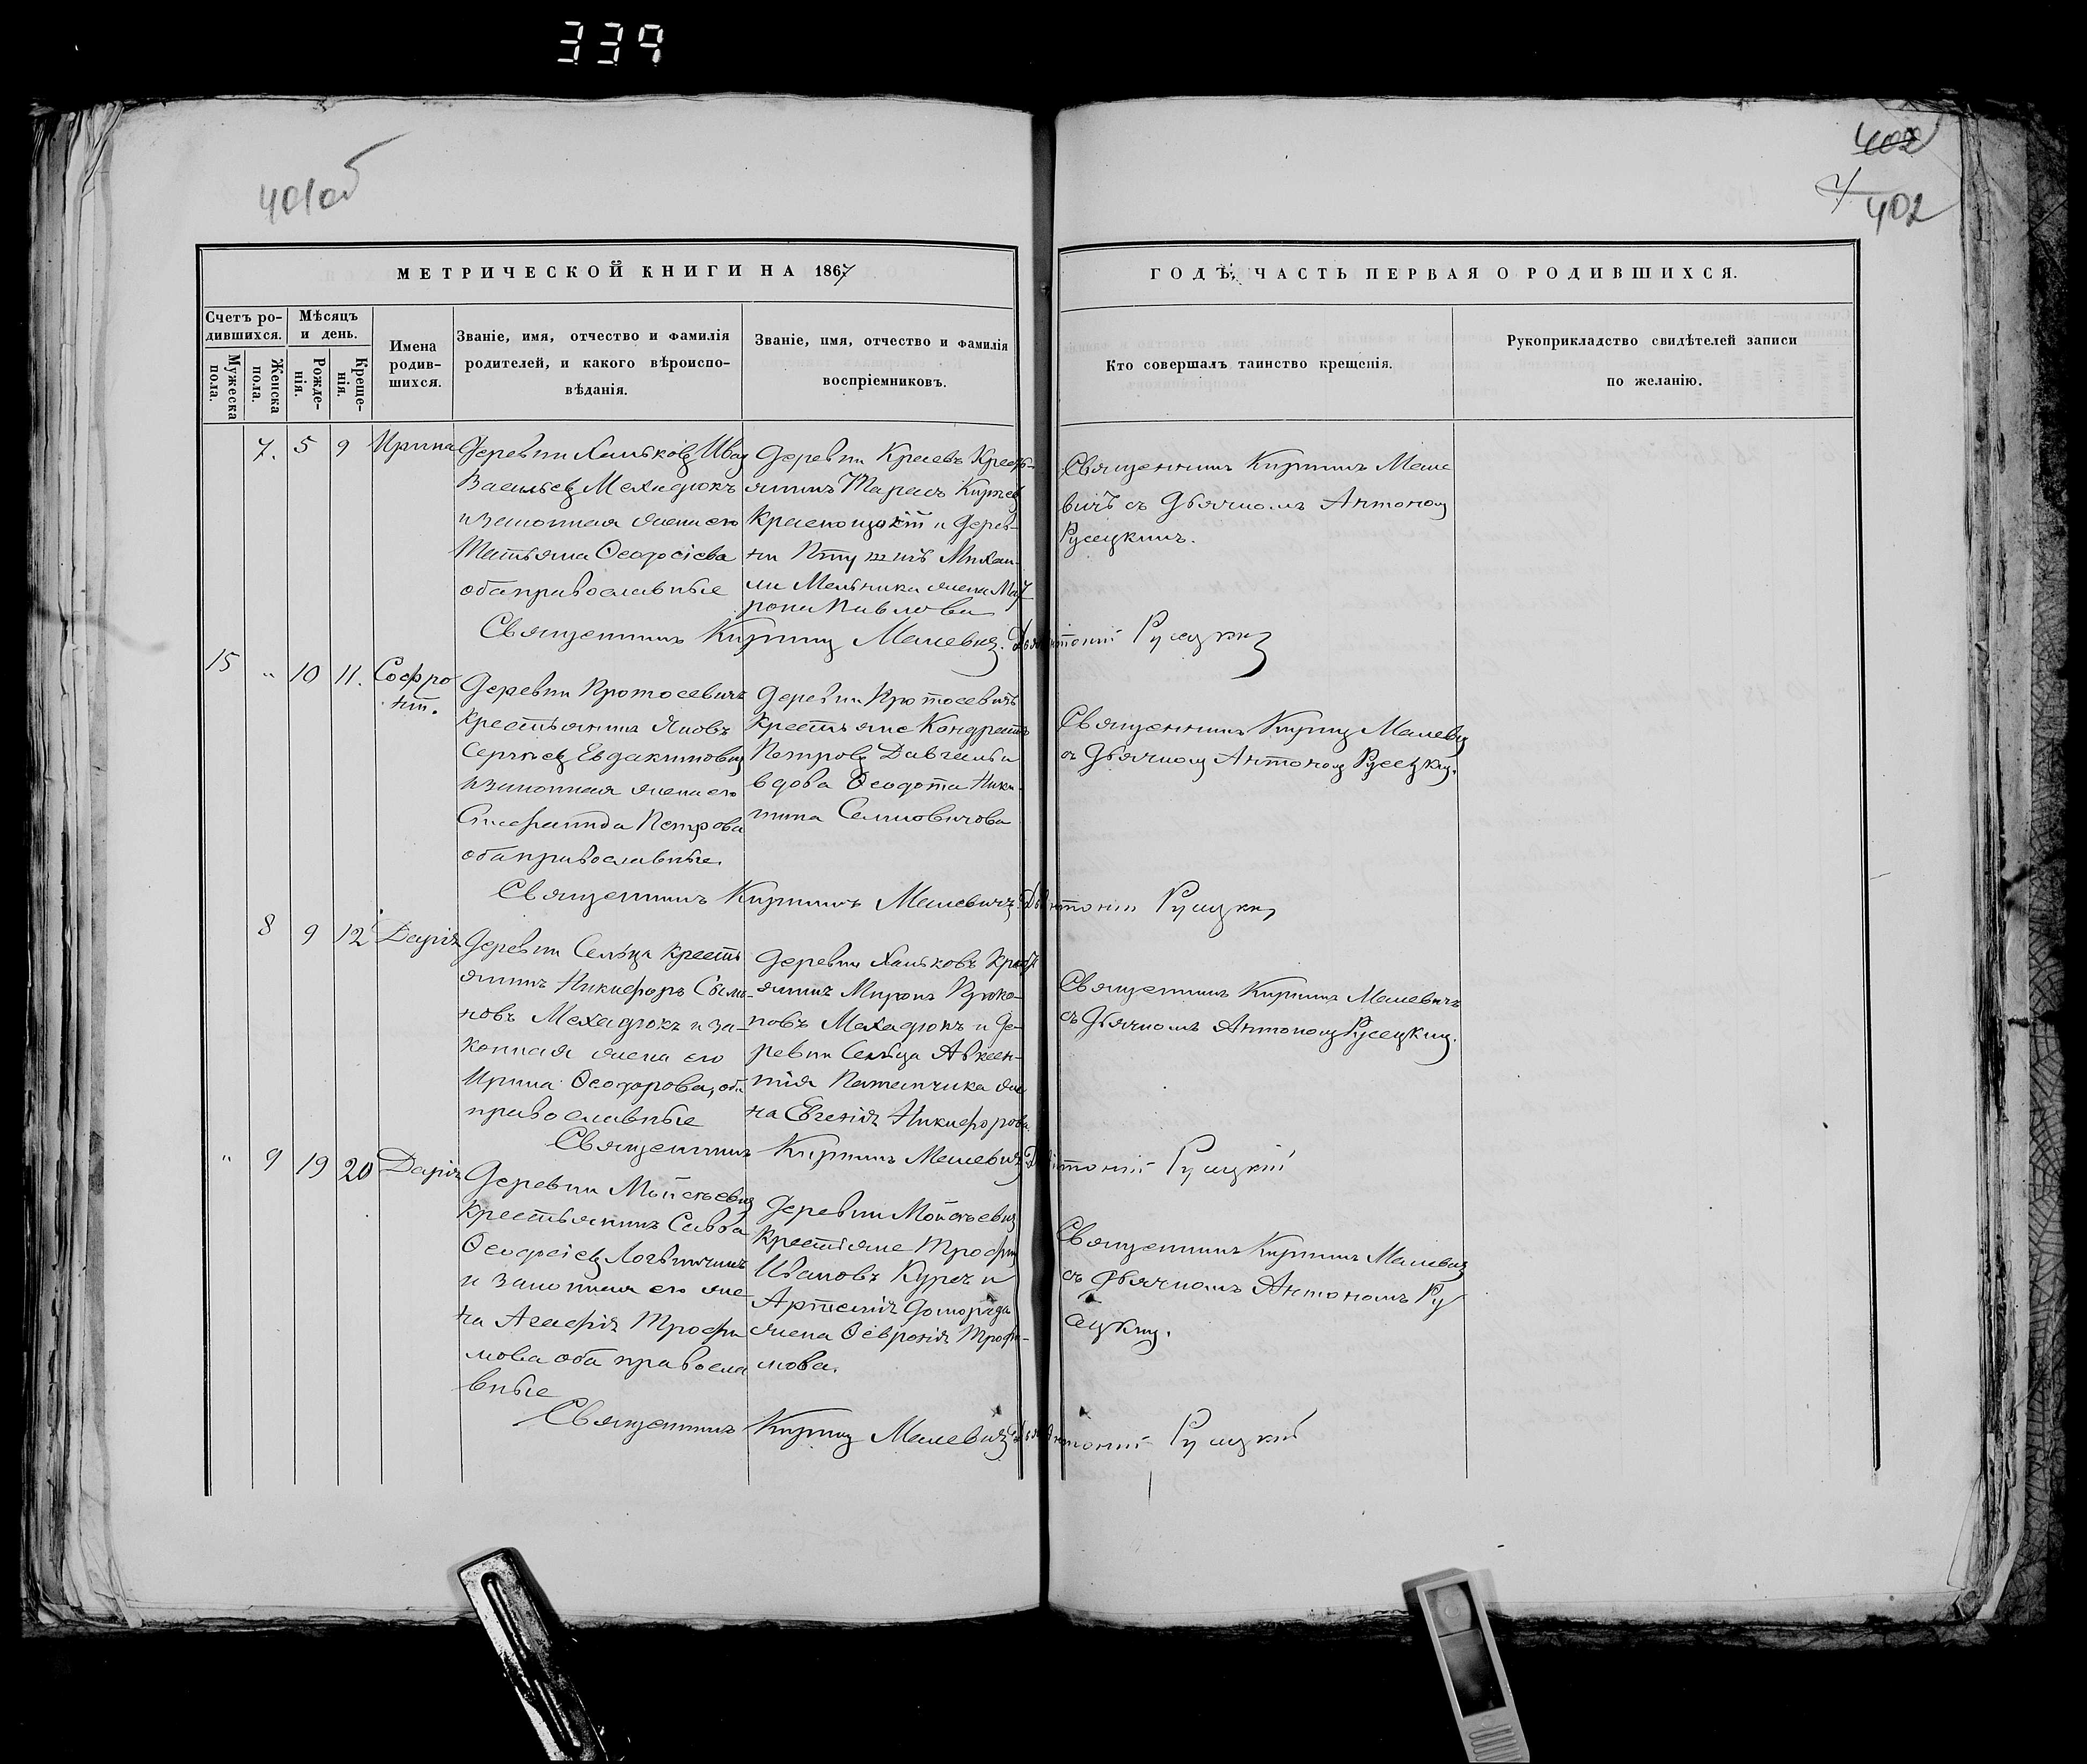 339
401об
402
402
МЕТРИЧЕСКОЙ КНИГИ НА 1867
ГОДЪ, ЧАСТЬ ПЕРВАЯ О РОДИВШИХСЯ.
Счетъ ро-
дившихся.
Мужеска
пола.
Женска
пола.
Мѣсяцъ
и день.
Рожде-
нія.
Креще-
нія.
Имена
родив-
шихся.
Званіе, имя, отчество и фамилія
родителей, и какого вѣроиспо-
вѣданія.
Званіе, имя, отчество и фамилія
воспріемниковъ.
Кто совершалъ таинство крещенія.
Рукоприкладство свидѣтелей записи
по желанію.
7. 5 9 Ирина
Деревни Ханьковъ Иванъ
Васильевъ Мехадюкъ
и законная жена его
Татьяна Ѳеодосіева
оба православные
Деревни Кресть-
янинъ Тарасъ
и Дерев-
ни Михаи-
ла Мельника жена Мат
рона Павлова
Священникъ Кириллъ Мале
вичъ съ Дьячкомъ Антономъ
Русецкимъ.
Священникъ Кириллъ Малевичъ. Антоній Русецкій
15 " 10 11. Софро
ній.
Деревни Протосевичъ
крестьянинъ Яковъ
Сергѣевъ Евдакимовичъ
и законная жена его
Петрова
оба православные.
Деревни Протосевичъ
крестьяне Кондратъ
Петровъ и
вдова Ѳеодота Ники-
тина
Священникъ Кириллъ Малевичъ
съ Дьячкомъ Антономъ Русецкимъ.
Священникъ Кириллъ Малевичъ Антоній Русецкій
8 9 12 Дарія
Деревни Сельца кресть
янинъ Никифоръ Симо-
новъ Мехадюкъ и за-
конная жена его
Ирина Ѳеодорова, оба
православные
Деревни Ханьковъ Кресть
янинъ Миронъ Проко-
повъ Мехадюкъ и Де-
ревни Сельца Авксен-
тія жe
на Евгенія Никифорова.
Священникъ Кириллъ Малевичъ
съ Дьячкомъ Антономъ Русецкимъ.
Священникъ Кириллъ Малевичъ Антоній Русецкій
" 9 19 20 Дарія
Деревни Мойсѣевичъ
крестьянинъ Савва
Ѳеодосіевъ
и законная его же
на Агафія Трофи
мова оба правосла
вные
Деревни Мойсѣевичъ
крестьяне Трофимъ
Ивановъ Курсъ и
Артемія
жена Ѳевронія Трофи-
мова.
Священникъ Кириллъ Малевичъ
съ Дьячкомъ Антономъ Ру
сецкимъ.
Священникъ Кириллъ Малевичъ Антоній Русецкій